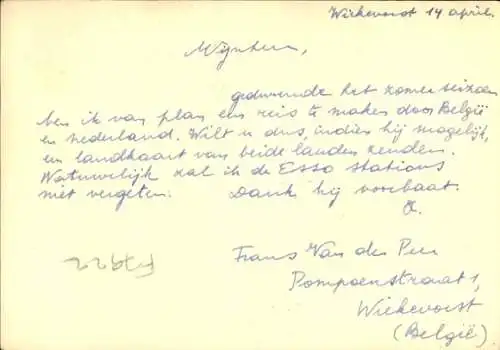 Wiekevorst 14 april.
Mijnheer,
gedurende het zomerseizoen
ben ik van plan een reis te maken door België
en nederland. Wilt u dus, indien hij mogelijk,
en landkaart van beide landen zenden.
Natuurlijk zal ik de Esso stations
niet vergeten. Dank bij voorbaat.
Frans Van den Peer
Pompoenstraat 1,
Wiekevorst
(België)